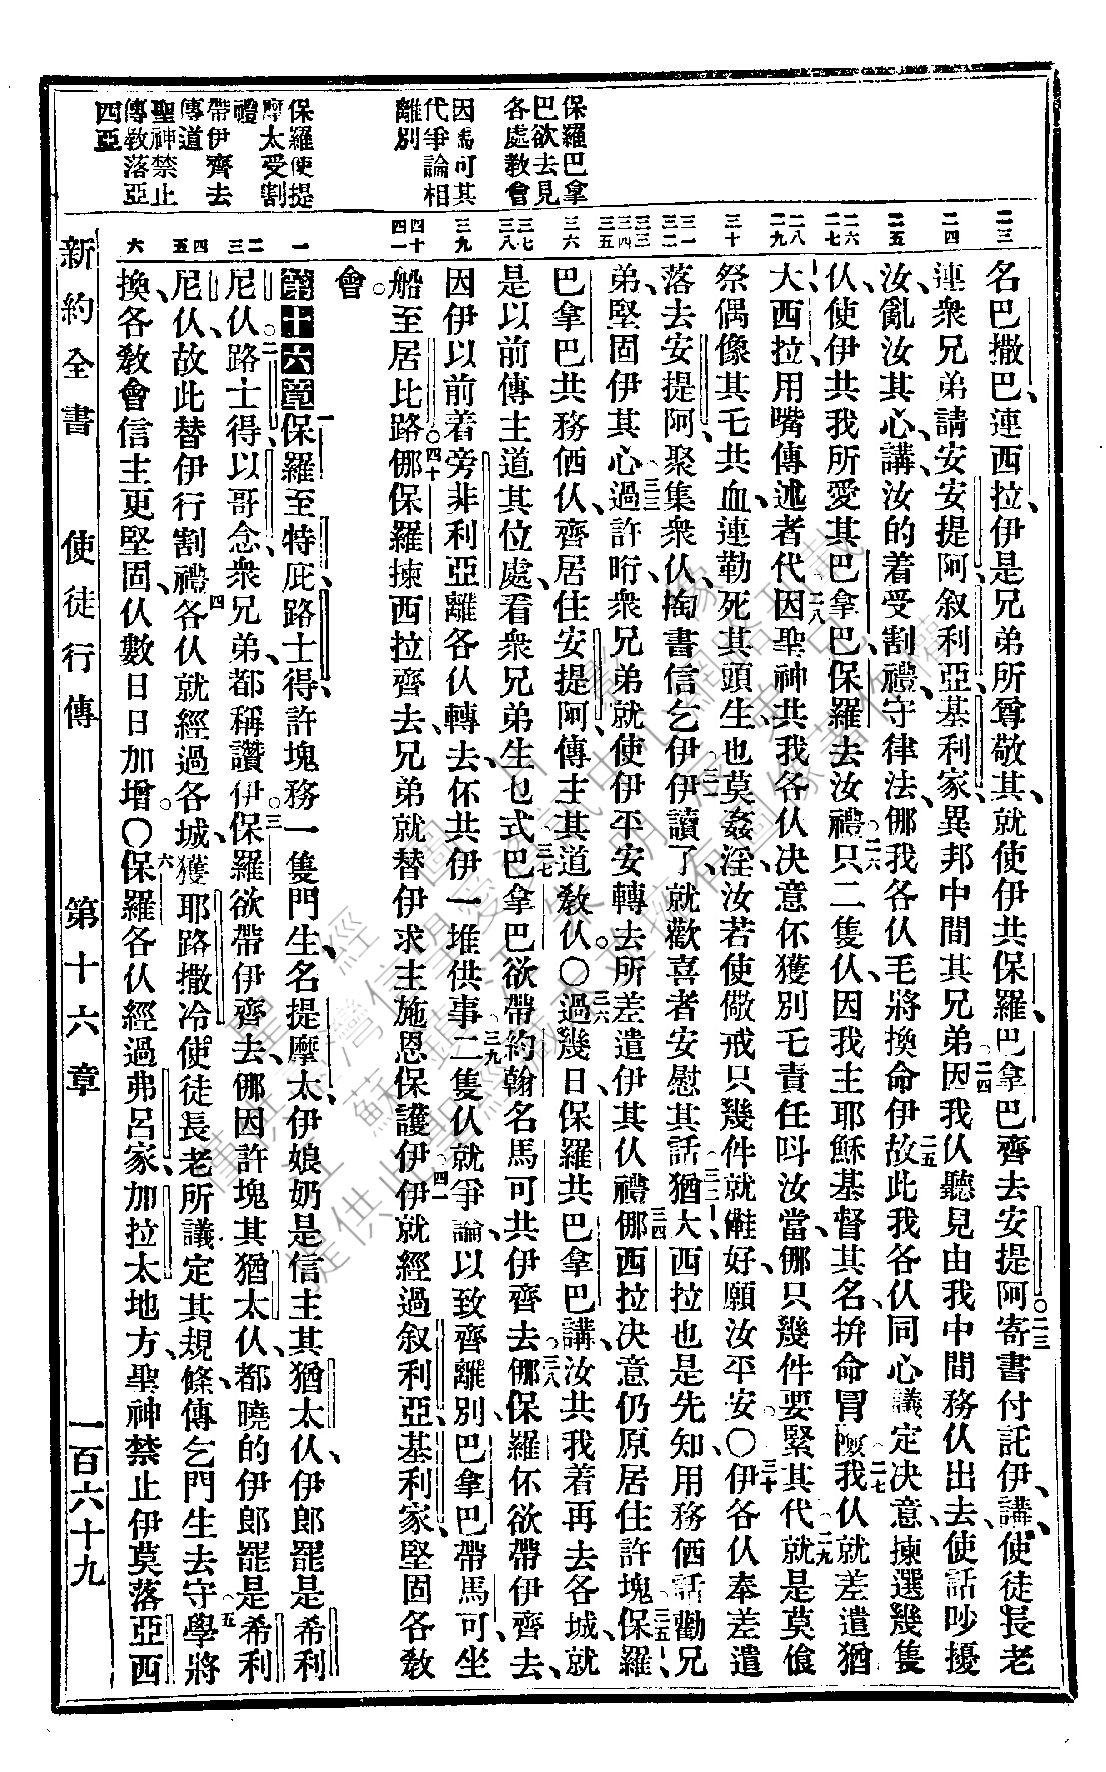 保羅巴拿
巴欲去見
各處教會
因馬可其
代爭論相
離別
保羅使提
摩太受割
禮
帶伊齊去
傳道
聖神禁止
傳教落亞
西亞
二三
二四
二五
二六
二七
二八
二九
三十
三一
三二
三三
三四
三五
三六
三七
三八
三九
四十
四一
一
二
三
四
五
六
名巴撒巴、連西拉伊是兄弟所尊敬其、就使伊共保羅、巴拿巴齊去安提阿。二三寄書付託伊、講、使徒長老
連衆兄弟請安安提阿、叙利亞、基利家、異邦中間其兄弟二四因我仈聽見由我中間務仈出去、使話吵擾
汝、亂汝其心、講、汝的着受割禮、守律法、㑚我各仈毛將換命伊二五故此我各仈同心議定决意、揀選幾隻
仈、使伊共我所愛其巴拿巴、保羅去汝禮。二六只二隻仈、因我主耶穌基督其名、拚命冒險二七我仈就差遣猶
大、西拉、用嘴傳述者代二八因聖神共我各仈决意伓獲別乇責任呌汝當、㑚只幾件要緊其代二九就是莫飡
祭偶像其乇、共血、連勒死其頭生、也莫姦淫、汝若使儆戒只幾件就⿰亻雖好、願汝平安。〇三十伊各仈奉差遣、
落去安提阿、聚集衆仈、掏書信乞伊、三一伊讀了、就歡喜者安慰其話三二猶大、西拉也是先知、用務価話勸兄
弟、堅固伊其心三三過許晌、衆兄弟就使伊平安轉去所差遣伊其仈禮三四㑚西拉决意仍原居住許塊三五保羅、
巴拿巴、共務価仈、齊居住安提阿、傳主其道敎仈。〇三六過幾日、保羅共巴拿巴講、汝共我着再去各城、就
是以前傳主道其位處、看衆兄弟生乜式三七巴拿巴欲帶約翰名馬可共伊齊去三八㑚保羅伓欲帶伊齊去、
因伊以前着旁非利亞離各仈轉去、伓共伊一堆供事三九二隻仈就爭論、以致齊離別、巴拿巴帶馬可、坐
船至居比路。四十㑚保羅揀西拉齊去、兄弟就替伊求主施恩保護伊四一伊就經過叙利亞、基利家、堅固各敎
會。
第十六章一保羅至特庇、路士得、許塊務一隻門生、名提摩太、伊娘奶是信主其猶太仈、伊郎罷是希利
尼仈。二路士得、以哥念、衆兄弟都稱讚伊三保羅欲帶伊齊去、㑚因許塊其猶太仈、都曉的伊郎罷是希利
尼仈、故此替伊行割禮四各仈就經過各城、獲耶路撒冷使徒長老所議定其規條、傳乞門生去守五學將
換、各敎會信主更堅固、仈數日日加增。〇六保羅各仈經過弗呂家、加拉太地方、聖神禁止伊莫落亞西
新約全書 使徒行傳 第十六章 一百六十九